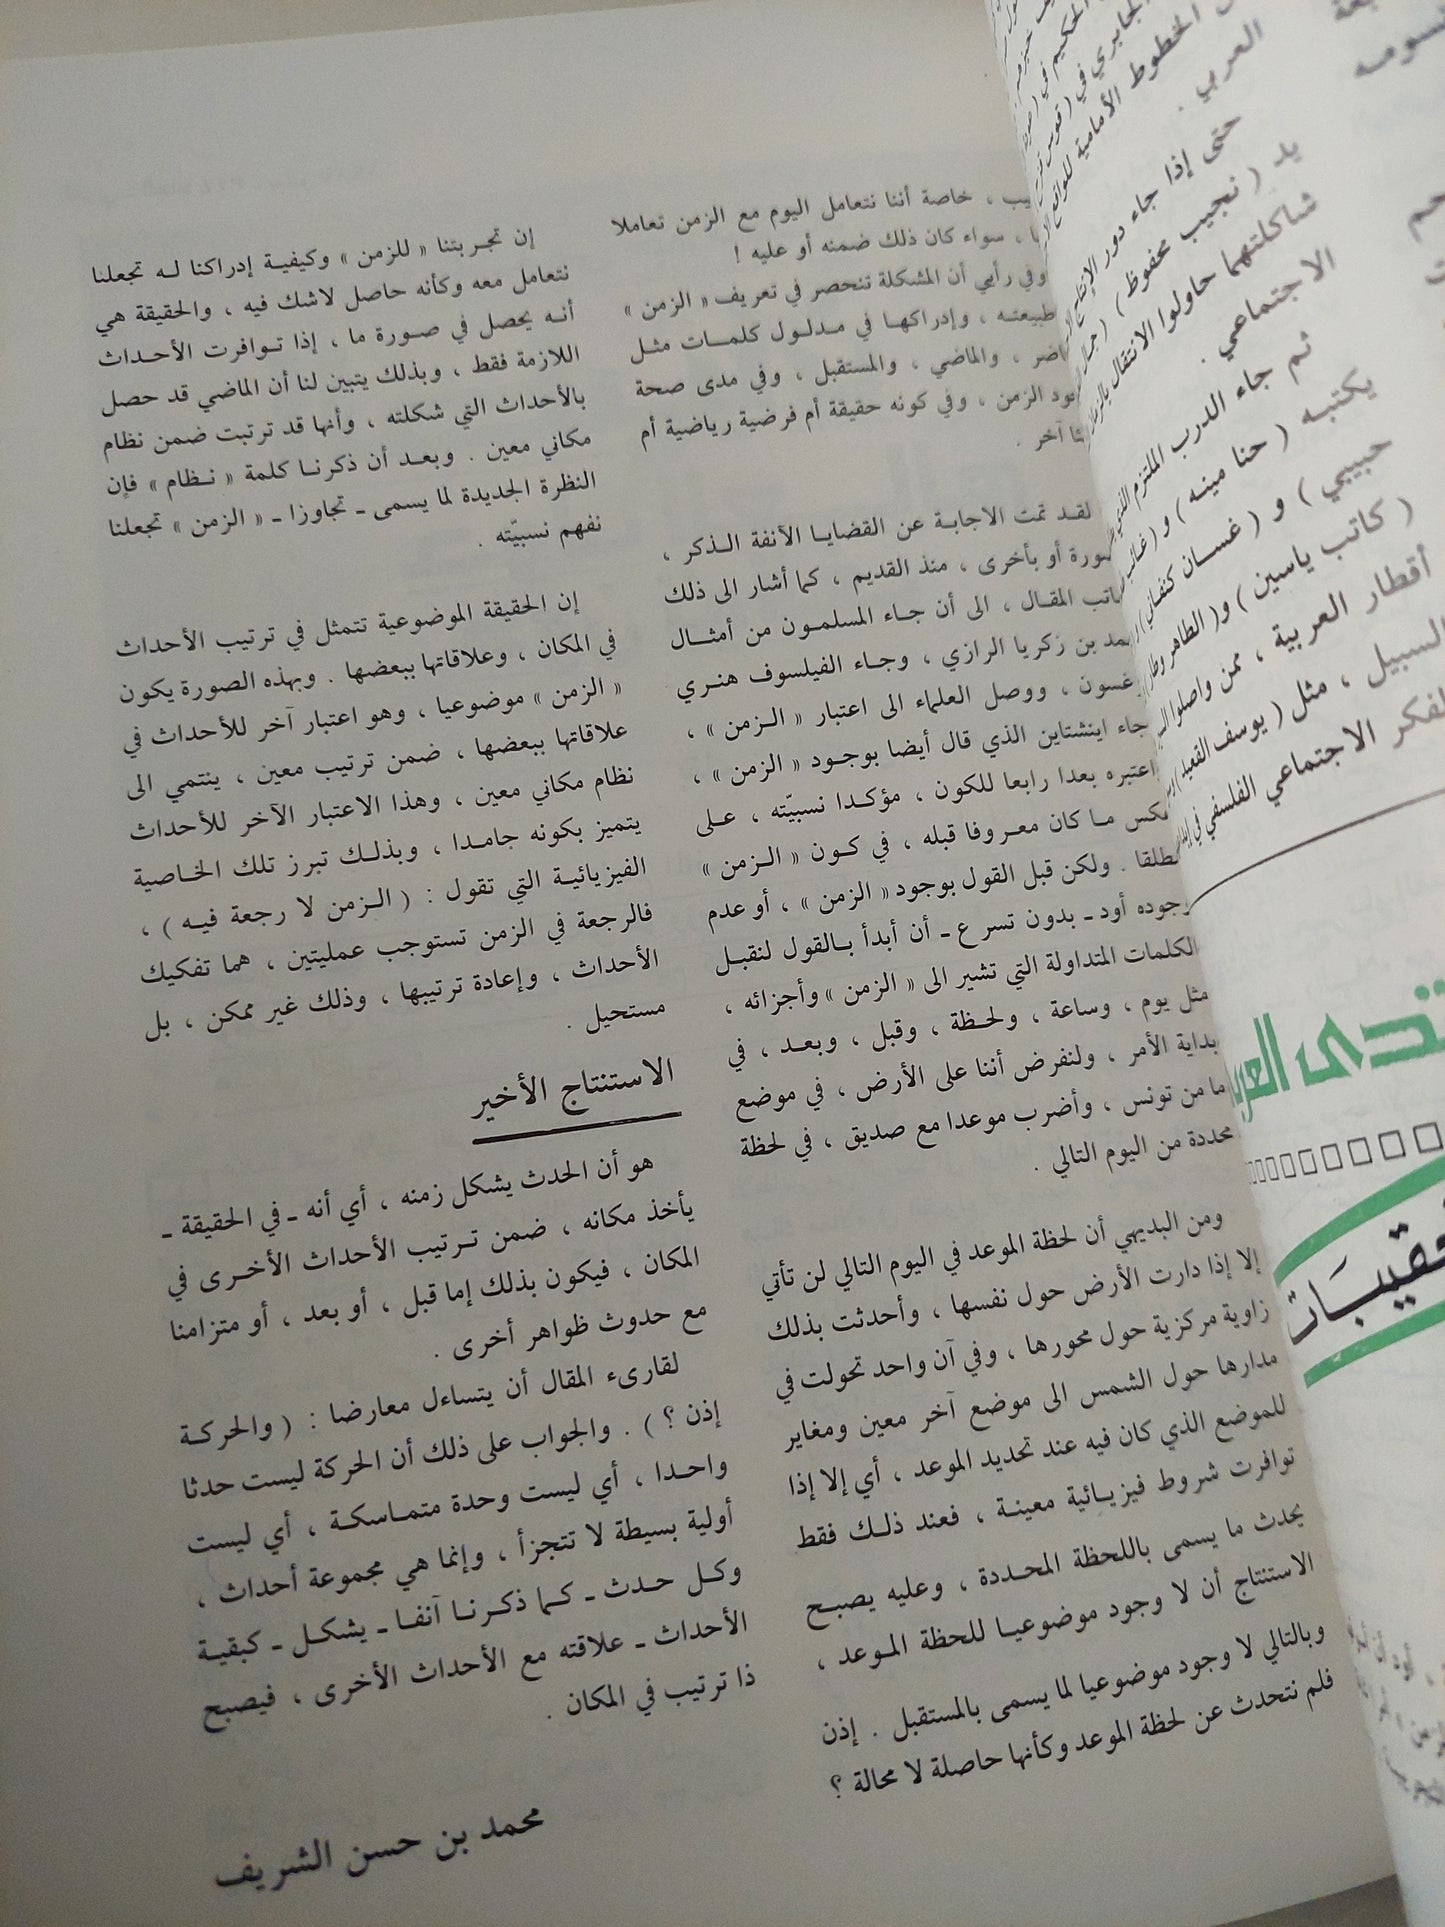 خاصة أننا نتعامل اليوم مع الزمن تعاملا
، سواء كان ذلك ضمنه أو عليه !
وفي رأيي أن المشكلة تنحصر في تعريف « الزمن »
طبيعته ، وإدراكها في مدلول كلمات مثل
، والماضي ، والمستقبل ، وفي مدى صحة
الزمن ، وفي كونه حقيقة أم فرضية رياضية أم
آخر .
لقد تمت الاجابة عن القضايا الآنفة الذكر ،
أو بأخرى ، منذ القديم ، كما أشار الى ذلك
المقال ، الى أن جاء المسلمون من أمثال
بن زكريا الرازي ، وجاء الفيلسوف هنري
، ووصل العلماء الى اعتبار « الزمن » ،
جاء اينشتاين الذي قال أيضا بوجود « الزمن » ،
اعتبره بعدا رابعا للكون ، مؤكدا نسبيّته ، على
ما كان معروفا قبله ، في كون « الزمن »
. ولكن قبل القول بوجود « الزمن » ، أو عدم
وجوده أود ـ بدون تسرع ـ أن أبدأ بالقول لنقبل
الكلمات المتداولة التي تشير الى « الزمن » وأجزائه ،
مثل يوم ، وساعة ، ولحظة ، وقبل ، وبعد ، في
بداية الأمر ، ولنفرض أننا على الأرض ، في موضع
ما من تونس ، وأضرب موعدا مع صديق ، في لحظة
محددة من اليوم التالي .
ومن البديهي أن لحظة الموعد في اليوم التالي لن تأتي
إلا إذا دارت الأرض حول نفسها ، وأحدثت بذلك
زاوية مركزية حول محورها ، وفي آن واحد تحولت في
مدارها حول الشمس الى موضع آخر معين ومغاير
للموضع الذي كان فيه عند تحديد الموعد ، أي إلا إذا
توافرت شروط فيزيائية معينة ، فعند ذلك فقط
يحدث ما يسمى باللحظة المحددة ، وعليه يصبح
الاستنتاج أن لا وجود موضوعيا للحظة الموعد ،
وبالتالي لا وجود موضوعيا لما يسمى بالمستقبل . إذن
فلم نتحدث عن لحظة الموعد وكأنها حاصلة لا محالة ؟
إن تجربتنا « للزمن » وكيفية إدراكنا له تجعلنا
نتعامل معه وكأنه حاصل لاشك فيه ، والحقيقة هي
أنه يحصل في صورة ما ، إذا توافرت الأحداث
اللازمة فقط ، وبذلك يتبين لنا أن الماضي قد حصل
بالأحداث التي شكلته ، وأنها قد ترتبت ضمن نظام
مكاني معين . وبعد أن ذكرنا كلمة « نظام » فإن
النظرة الجديدة لما يسمى ـ تجاوزا ـ « الزمن » تجعلنا
نفهم نسبيّته .
إن الحقيقة الموضوعية تتمثل في ترتيب الأحداث
في المكان ، وعلاقاتها ببعضها . وبهذه الصورة يكون
« الزمن » موضوعيا ، وهو اعتبار آخر للأحداث في
علاقاتها ببعضها ، ضمن ترتيب معين ، ينتمي الى
نظام مكاني معين ، وهذا الاعتبار الآخر للأحداث
يتميز بكونه جامدا ، وبذلك تبرز تلك الخاصية
الفيزيائية التي تقول : ( الزمن لا رجعة فيه ) ،
فالرجعة في الزمن تستوجب عمليتين ، هما تفكيك
الأحداث ، وإعادة ترتيبها ، وذلك غير ممكن ، بل
مستحيل .
الاستنتاج الأخير
هو أن الحدث يشكل زمنه ، أي أنه ـ في الحقيقة ـ
يأخذ مكانه ، ضمن ترتيب الأحداث الأخرى في
المكان ، فيكون بذلك إما قبل ، أو بعد ، أو متزامنا
مع حدوث ظواهر أخرى .
لقارىء المقال أن يتساءل معارضا : ( والحركة
إذن ؟ ) . والجواب على ذلك أن الحركة ليست حدثا
واحدا ، أي ليست وحدة متماسكة ، أي ليست
أولية بسيطة لا تتجزأ ، وإنما هي مجموعة أحداث ،
وكل حدث ـ كما ذكرنا آنفا ـ يشكل ـ كبقية
الأحداث ـ علاقته مع الأحداث الأخرى ، فيصبح
ذا ترتيب في المكان .
محمد بن حسن الشريف
الخطوط الأمامية للواقع
العربي .
حتى إذا جاء دور الإنتاج
يد ( نجيب محفوظ )
شاكلتهما حاولوا الانتقال
الاجتماعي .
ثم جاء الدرب الملتزم الذي
يكتبه ( حنا مينه ) و (
حبيبي ) و ( غسان كنفاني )
( كاتب ياسين ) و ( الطاهر وطار
أقطار العربية ، ممن واصلوا
السبيل ، مثل ( يوسف القعيد
الاجتماعي الفلسفي في